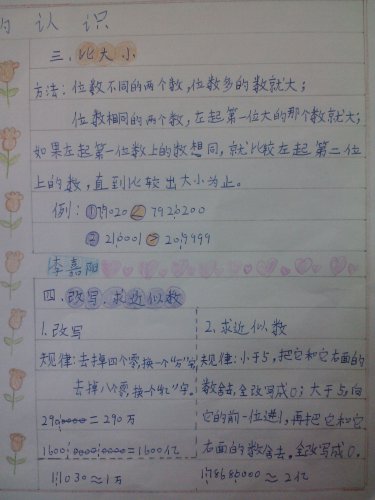 的认识
三、比大小
方法：位数不同的两个数，位数多的数就大；
位数相同的两个数，左起第一位大的那个数就大；
如果左起第一位数上的数想同，就比较左起第二位
上的数，直到比较出大小为止。
例：①79020 < 7920200
② 210001 > 209999
李嘉阳
四、改写、求近似数
1.改写
规律：去掉四个零，换一个“万”字
去掉八个零，换一个“亿”字。
2900000=290万
1600:0000:0000=1600亿
1:1030≈1万
2.求近似数
规律：小于5，把它和它右面的
数舍去，全改写成0；大于5，向
它的前一位进1，再把它和它
右面的数舍去，全改写成0。
≈2亿